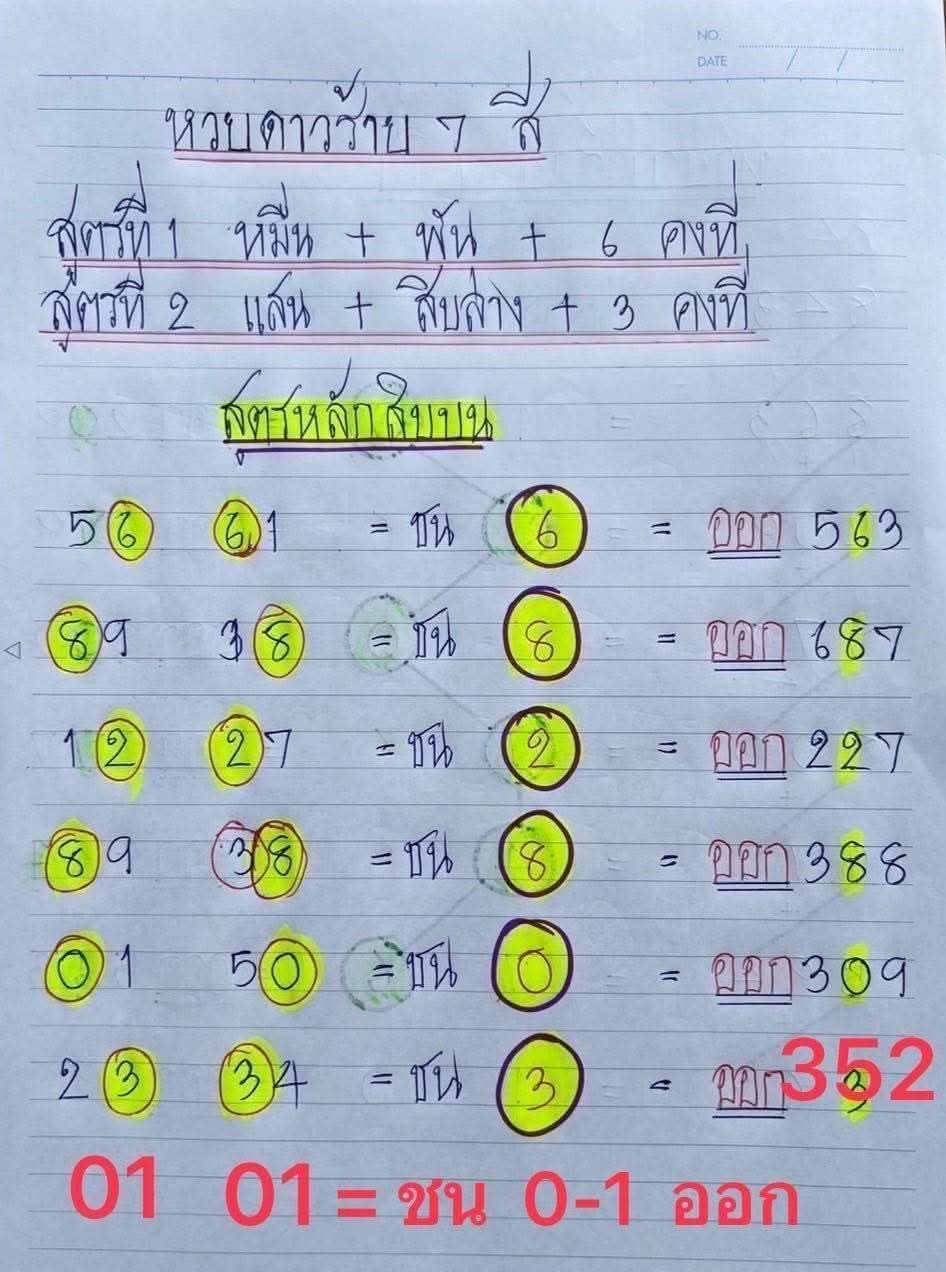 NO.
DATE / /
หวยดาวร้าย 7 สี
สูตรที่ 1 หมื่น + พัน + 6 คงที่
สูตรที่ 2 แสน + สิบล่าง + 3 คงที่
สูตรหลักสิบบน
56 61 = ชน 6 = ออก 563
89 38 = ชน 8 = ออก 687
12 27 = ชน 2 = ออก 227
89 38 = ชน 8 = ออก 388
01 50 = ชน 0 = ออก 309
23 34 = ชน 3 = ออก 3 352
01 01 = ชน 0-1 ออก